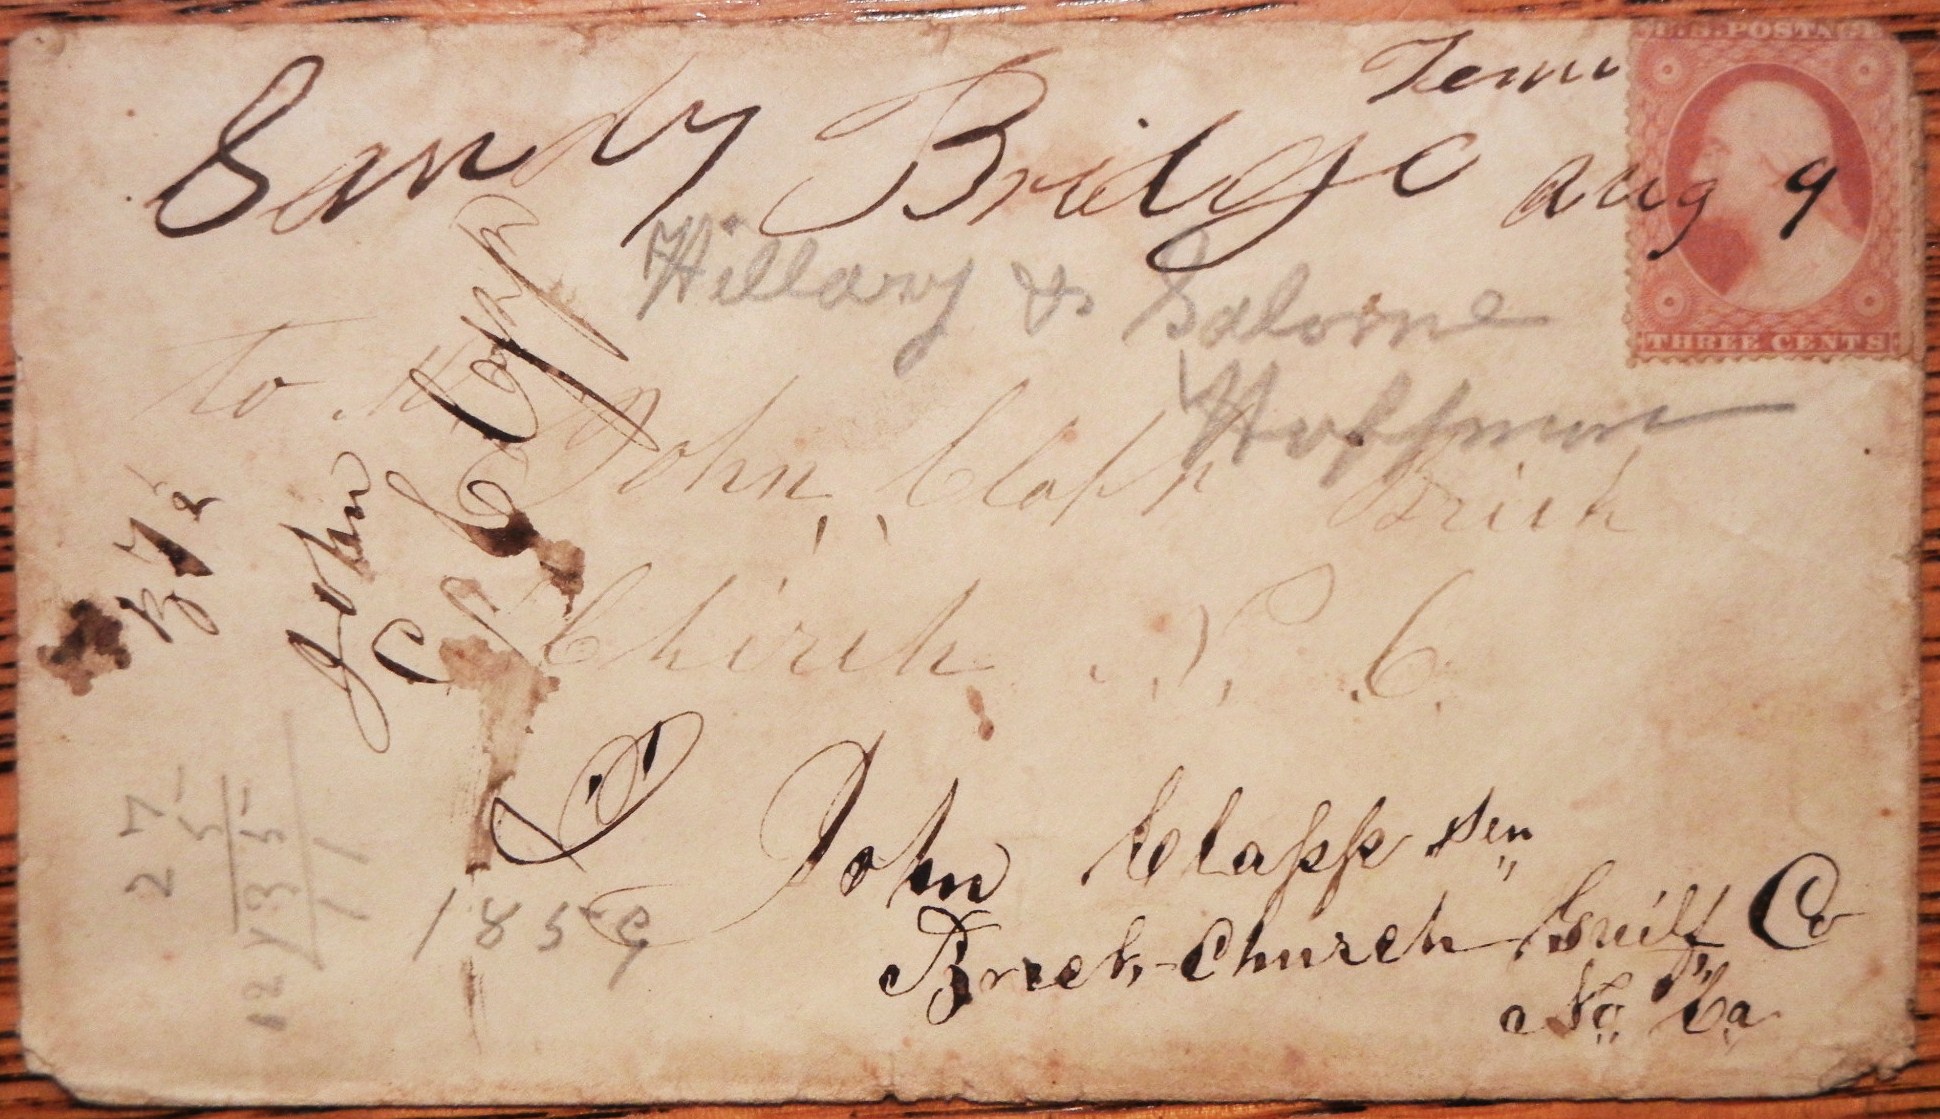 Tenn
Sandy Bridge Aug 9
U.S. POSTAGE
THREE CENTS
Hillary & Salome
Hoffman
to
John Clapp Brick
Chirch N. C.
John
Clapp
27
5
135
12
11
1859
John Clapp Sen
Brick-Church Guilf Co
No. Ca